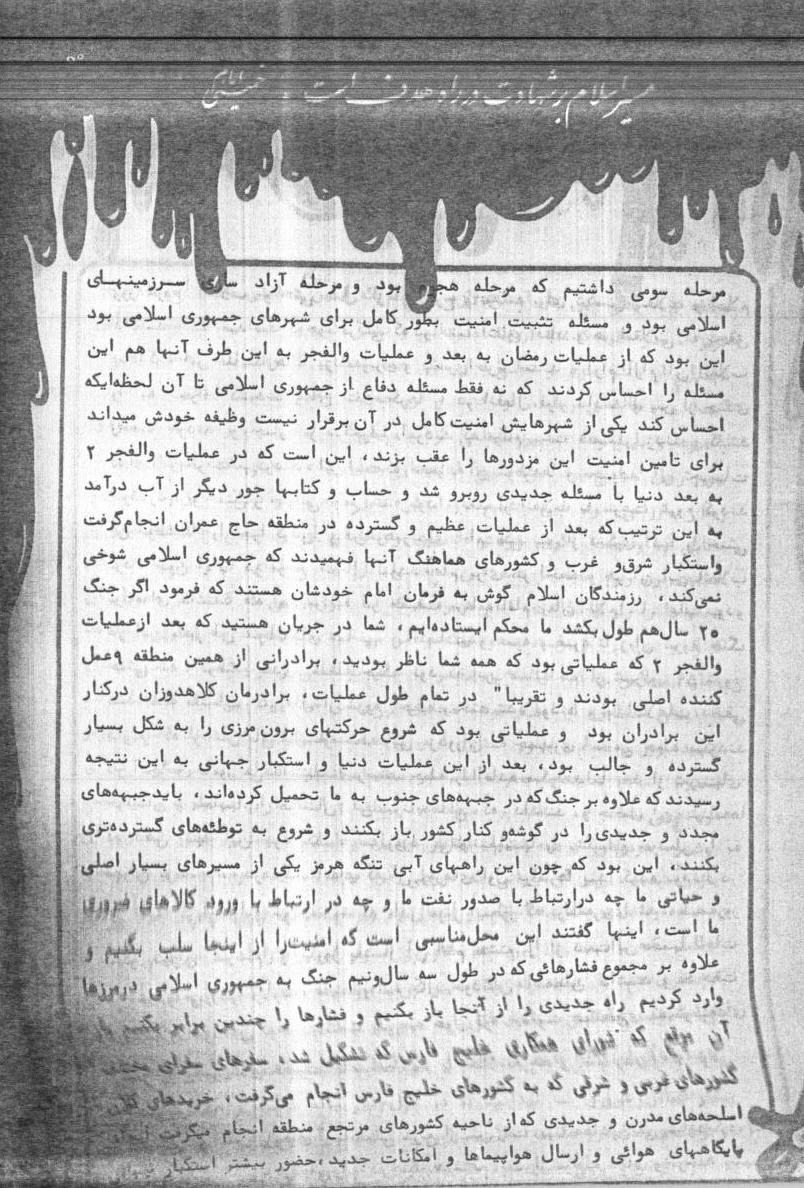 مسیر اسلام بر شهادت در راه هدف است. امام خمینی
مرحله سومی داشتیم که مرحله هجوم بود و مرحله آزاد سازی سـرزمینهـای
اسلامی بود و مسئله تثبیت امنیت بطور کامل برای شهرهای جمهوری اسلامی بود
این بود که از عملیات رمضان به بعد و عملیات والفجر به این طرف آنـها هم این
مسئله را احساس کردند که نه فقط مسئله دفاع از جمهوری اسلامی تا آن لحظه‌ایکه
احساس کند یکی از شهرهایش امنیت کامل در آن برقرار نیست وظیفه خودش میداند
برای تامین امنیت این مزدورها را عقب بزند، این است که در عملیات والفجر ۲
به بعد دنیا با مسئله جدیدی روبرو شد و حساب و کتابها جور دیگر از آب درآمد
به این ترتیب که بعد از عملیات عظیم و گسترده در منطقه حاج عمران انجام‌گرفت
واستکبار شرق‌و غرب و کشورهای هماهنگ آنـها فهمیدند که جمهوری اسلامی شوخی
نمی‌کند، رزمندگان اسلام گوش به فرمان امام خودشان هستند که فرمود اگر جنگ
۲۰ سال‌هم طول بکشد ما محکم ایستاده‌ایم، شما در جریان هستید که بعد ازعملیات
والفجر ۲ که عملیاتی بود که همه شما ناظر بودید، برادرانی از همین منطقه ۹عمل
کننده اصلی بودند و تقریبا" در تمام طول عملیات، برادرمان کلاهدوزان درکنار
این برادران بود و عملیاتی بود که شروع حرکتهای برون مرزی را به شکل بسیار
گسترده و جالب بود، بعد از این عملیات دنیا و استکبار جهانی به این نتیجه
رسیدند که علاوه بر جنگ که در جبهه‌های جنوب به ما تحمیل کرده‌اند، بایدجبهه‌های
مجدد و جدیدی را در گوشه‌و کنار کشور باز بکنند و شروع به توطئه‌های گسترده‌تری
بکنند، این بود که چون این راههای آبی تنگه هرمز یکی از مسیرهای بسیار اصلی
و حیاتی ما چه درارتباط با صدور نفت ما و چه در ارتباط با ورود کالاهای ضروری
ما است، اینها گفتند این محل‌مناسبی است که امنیت‌را از اینجا سلب بکنیم و
علاوه بر مجموع فشارهائی که در طول سه سال‌ونیم جنگ به جمهوری اسلامی درمرزها
وارد کردیم راه جدیدی را از آنجا باز بکنیم و فشارها را چندین برابر بکنیم
آن موقع که شورای همکاری خلیج فارس که تشکیل شد، سفرهای سفرای مختلف
کشورهای غربی و شرقی که به کشورهای خلیج فارس انجام می‌گرفت، خریدهای کلان
اسلحه‌های مدرن و جدیدی که از ناحیه کشورهای مرتجع منطقه انجام میگرفت
پایگاههای هوائی و ارسال هواپیماها و امکانات جدید، حضور بیشتر استکبار